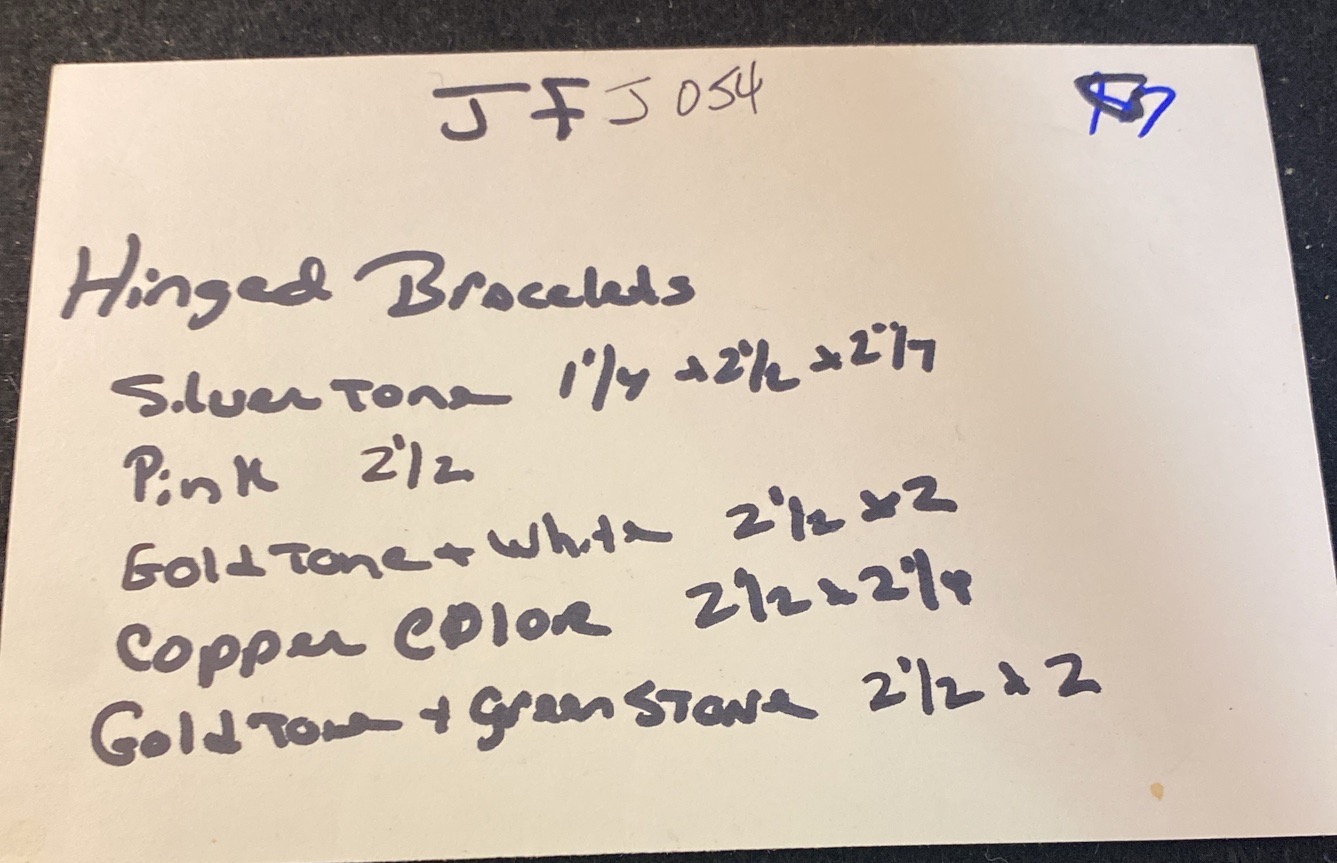 JFJ054
Hinged Bracelets
Silver Tone 1 1/4 x 2 1/2 x 2 1/4
Pink 2 1/2
Gold Tone + White 2 1/2 x 2
Copper Color 2 1/2 x 2 1/4
Gold Tone + Green Stone 2 1/2 x 2